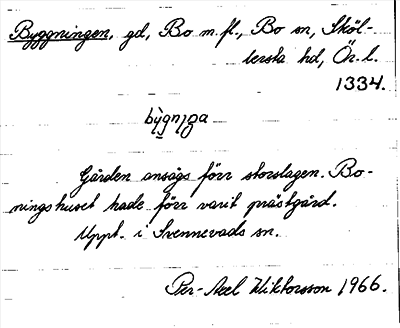 Byggningen, gd, Bo m.fl., Bo sn, Sköl-
lersta hd, Ör. l.
1334.
bỳgnıŋa
Gården ansågs förr storslagen. Bo-
ningshuset hade förr varit prästgård.
Uppt. i Svennevads sn.
Per-Axel Wiktorsson 1966.